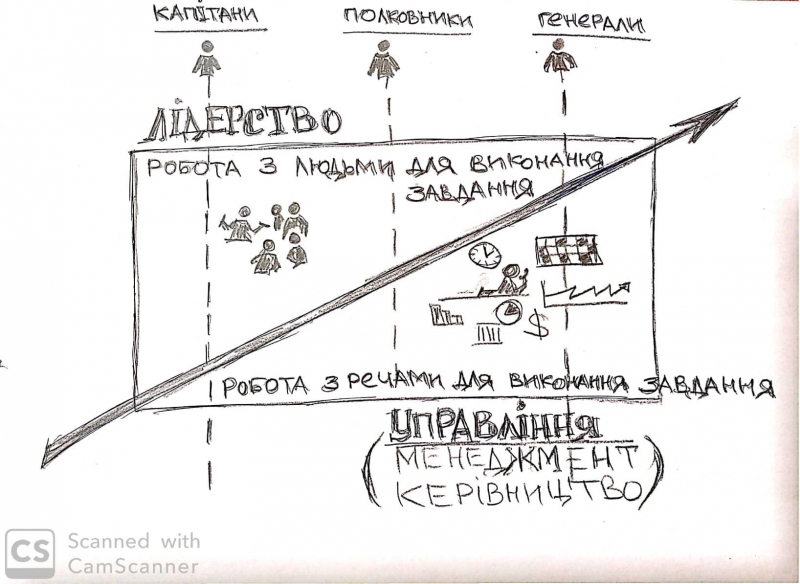 КАПІТАНИ
ПОЛКОВНИКИ
ГЕНЕРАЛИ
ЛІДЕРСТВО
РОБОТА З ЛЮДЬМИ ДЛЯ ВИКОНАННЯ
ЗАВДАННЯ
$
РОБОТА З РЕЧАМИ ДЛЯ ВИКОНАННЯ ЗАВДАННЯ
УПРАВЛІННЯ
(МЕНЕДЖМЕНТ
КЕРІВНИЦТВО)
CS Scanned with
CamScanner